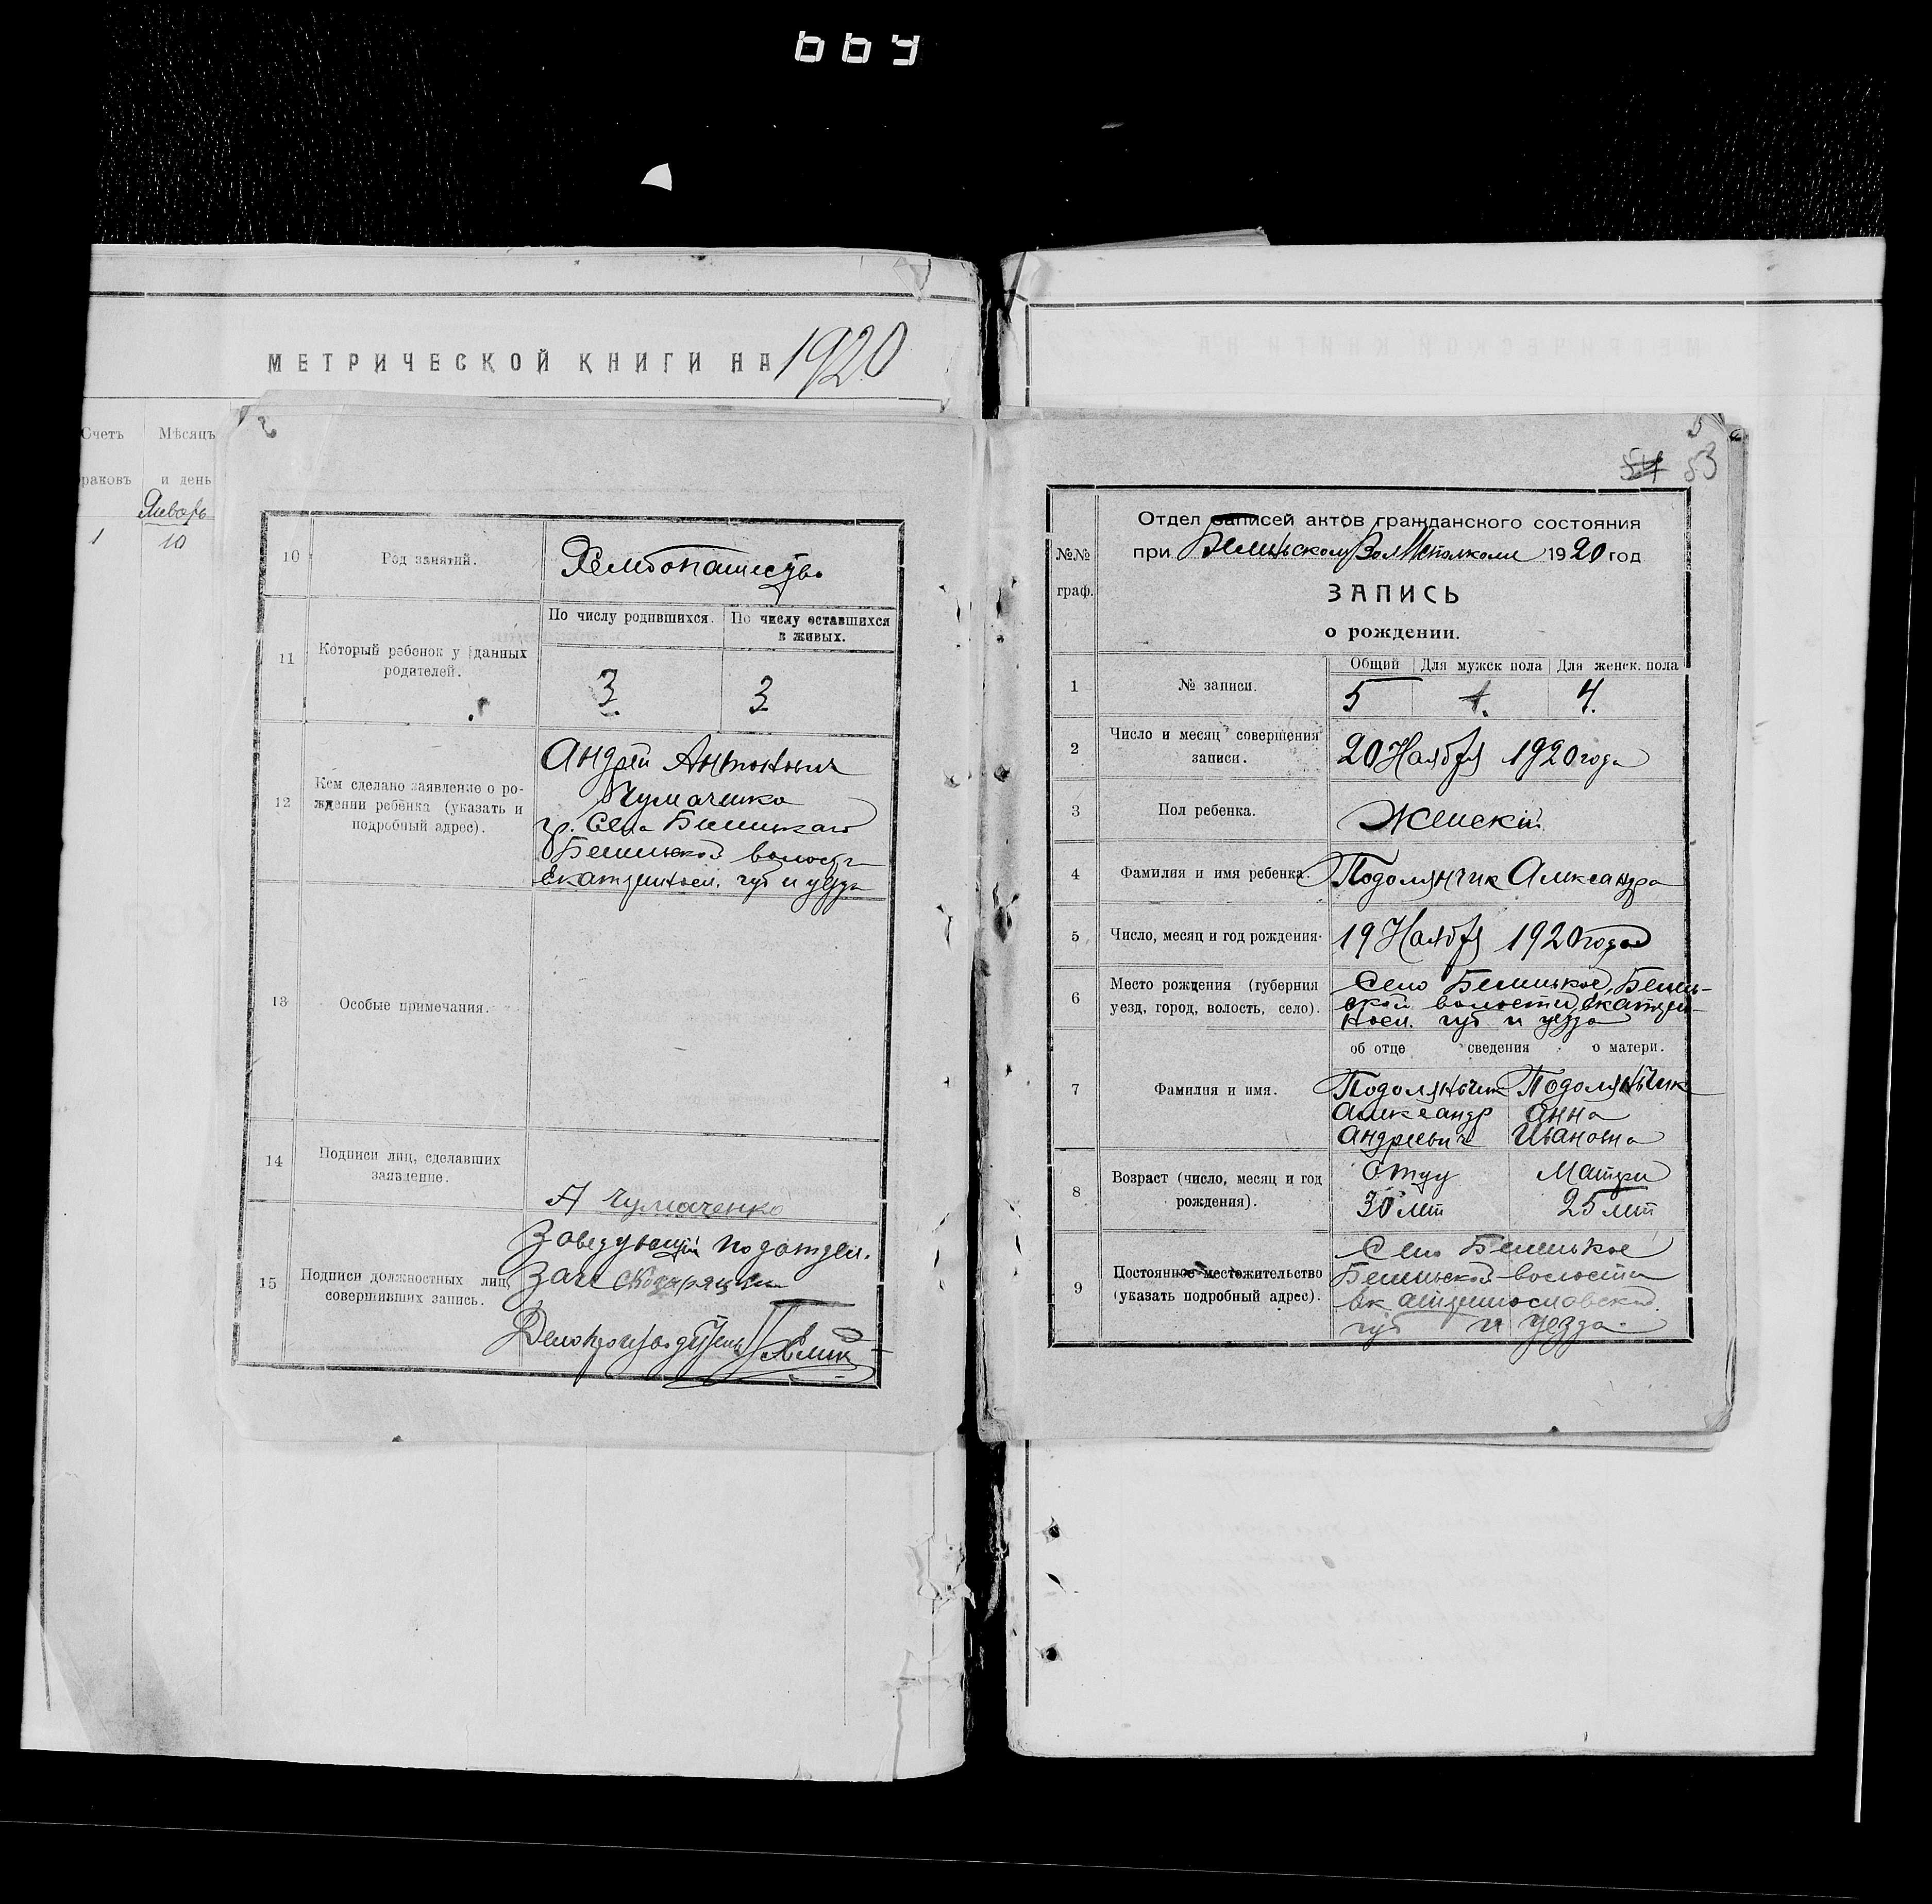 664
МЕТРИЧЕСКОЙ КНИГИ НА 1920
Счетъ
Мѣсяцъ
раковъ
и день
Январь
1
10
10
Род занятий.
Хлебопашество
11
Который ребенок у данных
родителей.
По числу родившихся.
По числу оставшихся
в живых.
3
3
12
Кем сделано заявление о ро-
ждении ребенка (указать и
подробный адрес).
Андрей Антонович
Чумаченко
гр. Села
волости
губ и уезда
13
Особые примечания.
14
Подписи лиц, сделавших
заявление.
А Чумаченко
15
Подписи должностных лиц,
совершивших запись.
Заведующий подотдел.
Делопроизводитель
54 53
№№
граф.
Отдел записей актов гражданского состояния
при ВолИсполкоме 1920 год
ЗАПИСЬ
о рождении.
1
№ записи.
Общий
Для мужск пола
Для женск. пола
5
1.
4.
2
Число и месяц совершения
записи.
20 Ноября 1920 года
3
Пол ребенка.
Женский
4
Фамилия и имя ребенка.
Подолянчик Александра
5
Число, месяц и год рождения.
19 Ноября 1920 года
6
Место рождения (губерния
уезд, город, волость, село).
Село
ской волости, Екатери-
носл. губ и уезда
об отце сведения о матери.
7
Фамилия и имя.
Подоляньчик Подоляньчик
Александр Анна
Андреевич Ивановна
8
Возраст (число, месяц и год
рождения).
Отцу Матери
30 лет 25 лет
9
Постоянное местожительство
(указать подробный адрес).
Село
волости
Екатеринославской
губ и уезда.